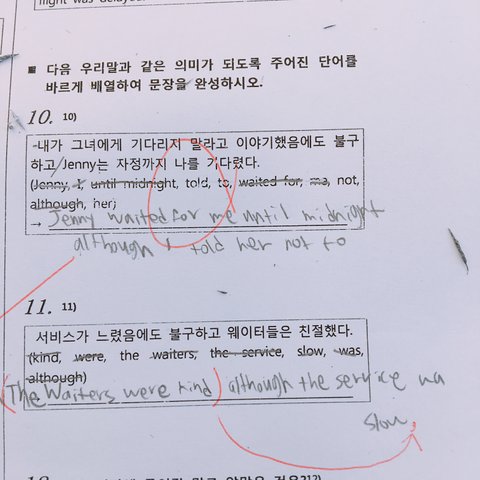 flight was delayed
■ 다음 우리말과 같은 의미가 되도록 주어진 단어를
바르게 배열하여 문장을 완성하시오.
10. 10)
-내가 그녀에게 기다리지 말라고 이야기했음에도 불구
하고 Jenny는 자정까지 나를 기다렸다.
(Jenny, I, until midnight, told, to, waited for, me, not,
although, her)
→ Jenny waited for me until midnight
although I told her not to
11. 11)
서비스가 느렸음에도 불구하고 웨이터들은 친절했다.
(kind, were, the waiters, the service, slow, was,
although)
(The Waiters were kind) although the service wa
slow.